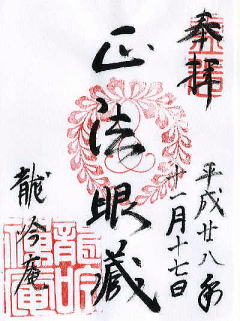 奉拝
平成廿八年
十一月十七日
正法眼蔵
龍吟庵